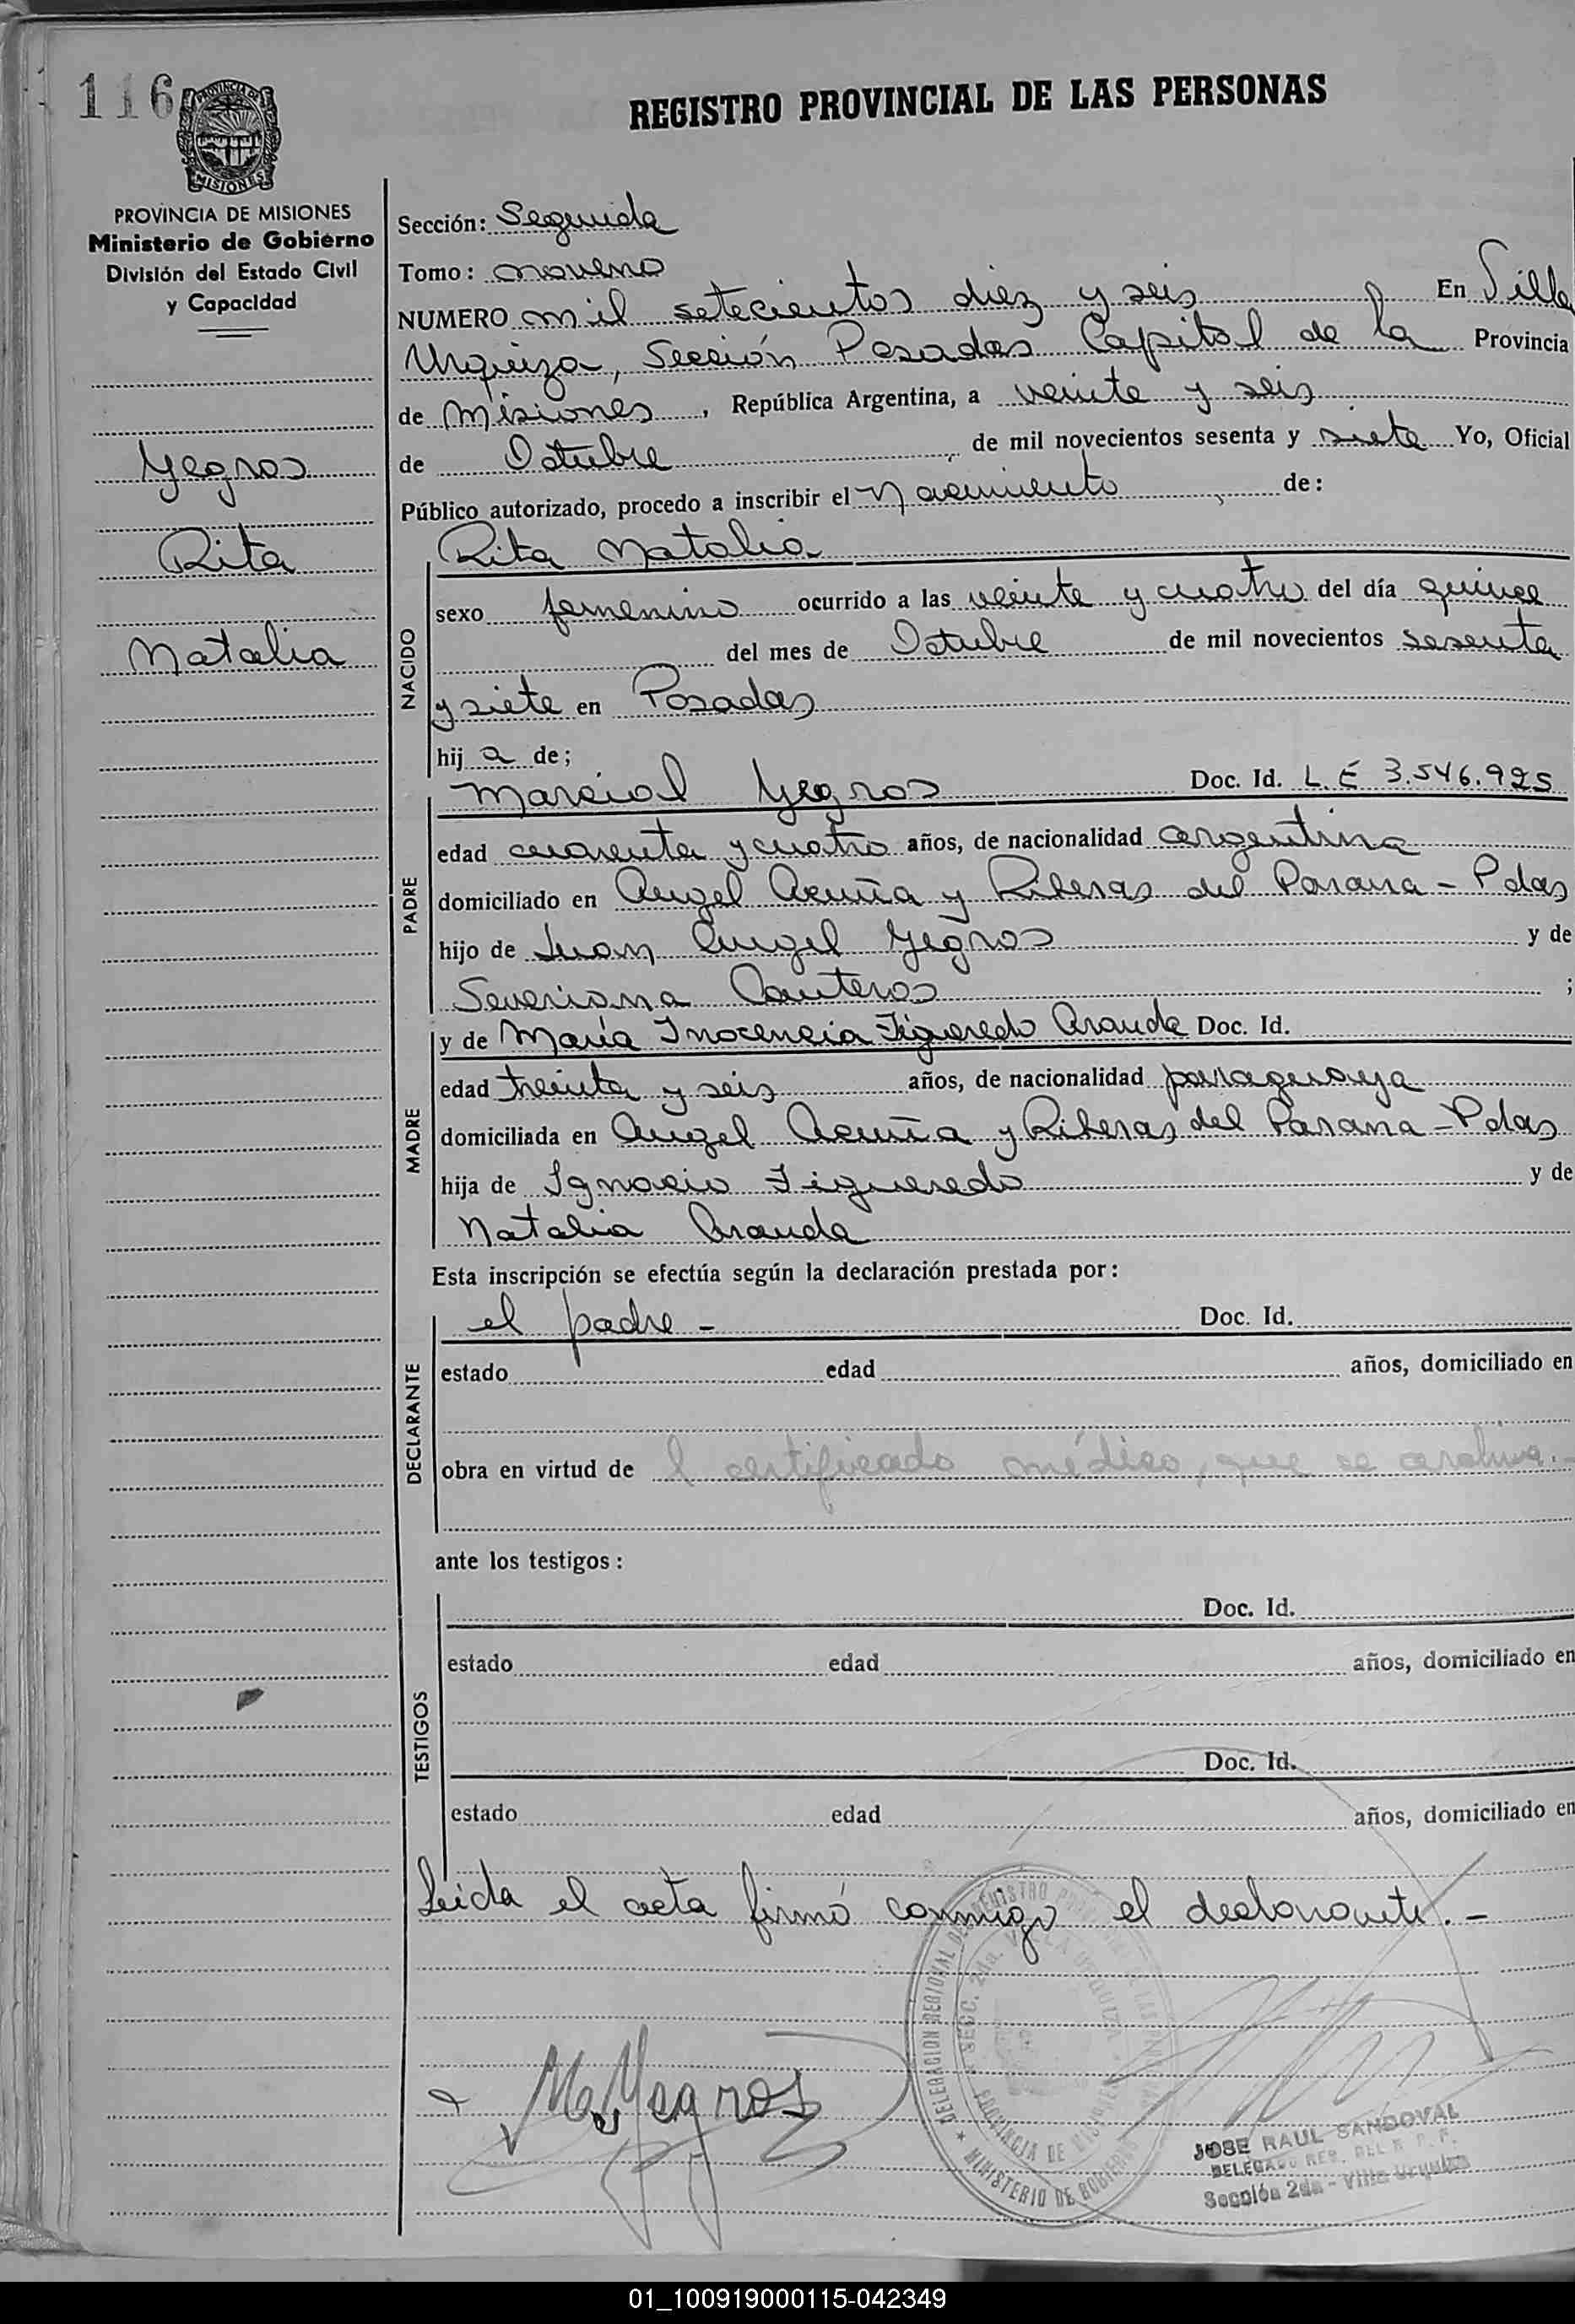 116
PROVINCIA DE
MISIONES
REGISTRO PROVINCIAL DE LAS PERSONAS
PROVINCIA DE MISIONES
Ministerio de Gobierno
División del Estado Civil
y Capacidad
Yegros
Rita
Natalia
Sección: Segunda
Tomo: noveno
NUMERO mil setecientos diez y seis En Villa
Urquiza, Sección Posadas Capital de la Provincia
de Misiones, República Argentina, a veinte y seis
de Octubre de mil novecientos sesenta y siete Yo, Oficial
Público autorizado, procedo a inscribir el Nacimiento de:
NACIDO
Rita Natalia
sexo femenino ocurrido a las veinte y cuatro del día quince
del mes de Octubre de mil novecientos sesenta
y siete en Posadas
hij a de;
PADRE
Marcial Yegros Doc. Id. L. E 3.546.925
edad cuarenta y cuatro años, de nacionalidad argentina
domiciliado en Angel Acuña y Riberas del Parana - Pdas
hijo de Juan Angel Yegros y de
Severiana Canteros ;
MADRE
y de María Inocencia Figueredo Aranda Doc. Id.
edad treinta y seis años, de nacionalidad paraguaya
domiciliada en Angel Acuña y Riberas del Parana - Pdas
hija de Ignacio Figueredo y de
Natalia Aranda
Esta inscripción se efectúa según la declaración prestada por:
DECLARANTE
el padre - Doc. Id.
estado edad años, domiciliado en
obra en virtud de l certificado médico, que se archiva.-
ante los testigos:
TESTIGOS
Doc. Id.
estado edad años, domiciliado en
Doc. Id.
estado edad años, domiciliado en
Leida el acta firmó conmigo el declarante.-
M. Yegros
DELEGACION REGIONAL DEL REGISTRO PROVINCIAL DE LAS PERSONAS
SECC. 2da. VILLA URQUIZA
PROVINCIA DE MISIONES
★ MINISTERIO DE GOBIERNO
JOSE RAUL SANDOVAL
DELEGADO REG. DEL R. P. P.
Sección 2da - Villa Urquiza
01_100919000115-042349